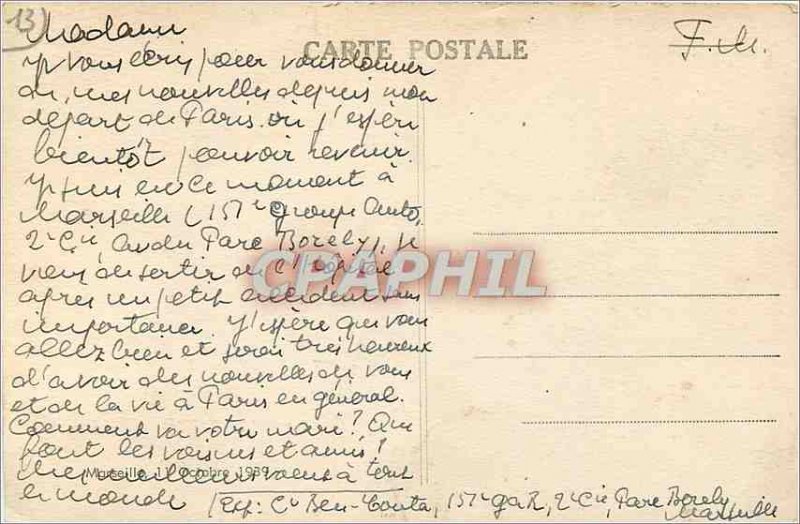 13)
Madame
CARTE POSTALE
F.M.
Je vous écris pour vous donner
de mes nouvelles depuis mon
départ de Paris où j'espère
bientôt pouvoir revenir.
Je suis en ce moment à
Marseille (157e groupe Auto,
2e Cie, Parc Borely), je
viens de sortir de l'hôpital
après un petit accident sans
importance. J'espère que vous
allez bien et serai très heureux
d'avoir des nouvelles de vous
et de la vie à Paris en général.
Comment va votre mari? Que
font les voisins et amis?
Marseille, 11 Octobre 1939
Mes meilleurs vœux à tout
le monde
Exp: Ct Ben-, 157e ga R, 2e Cie, Parc Borely
Marseille
CHAPHIL